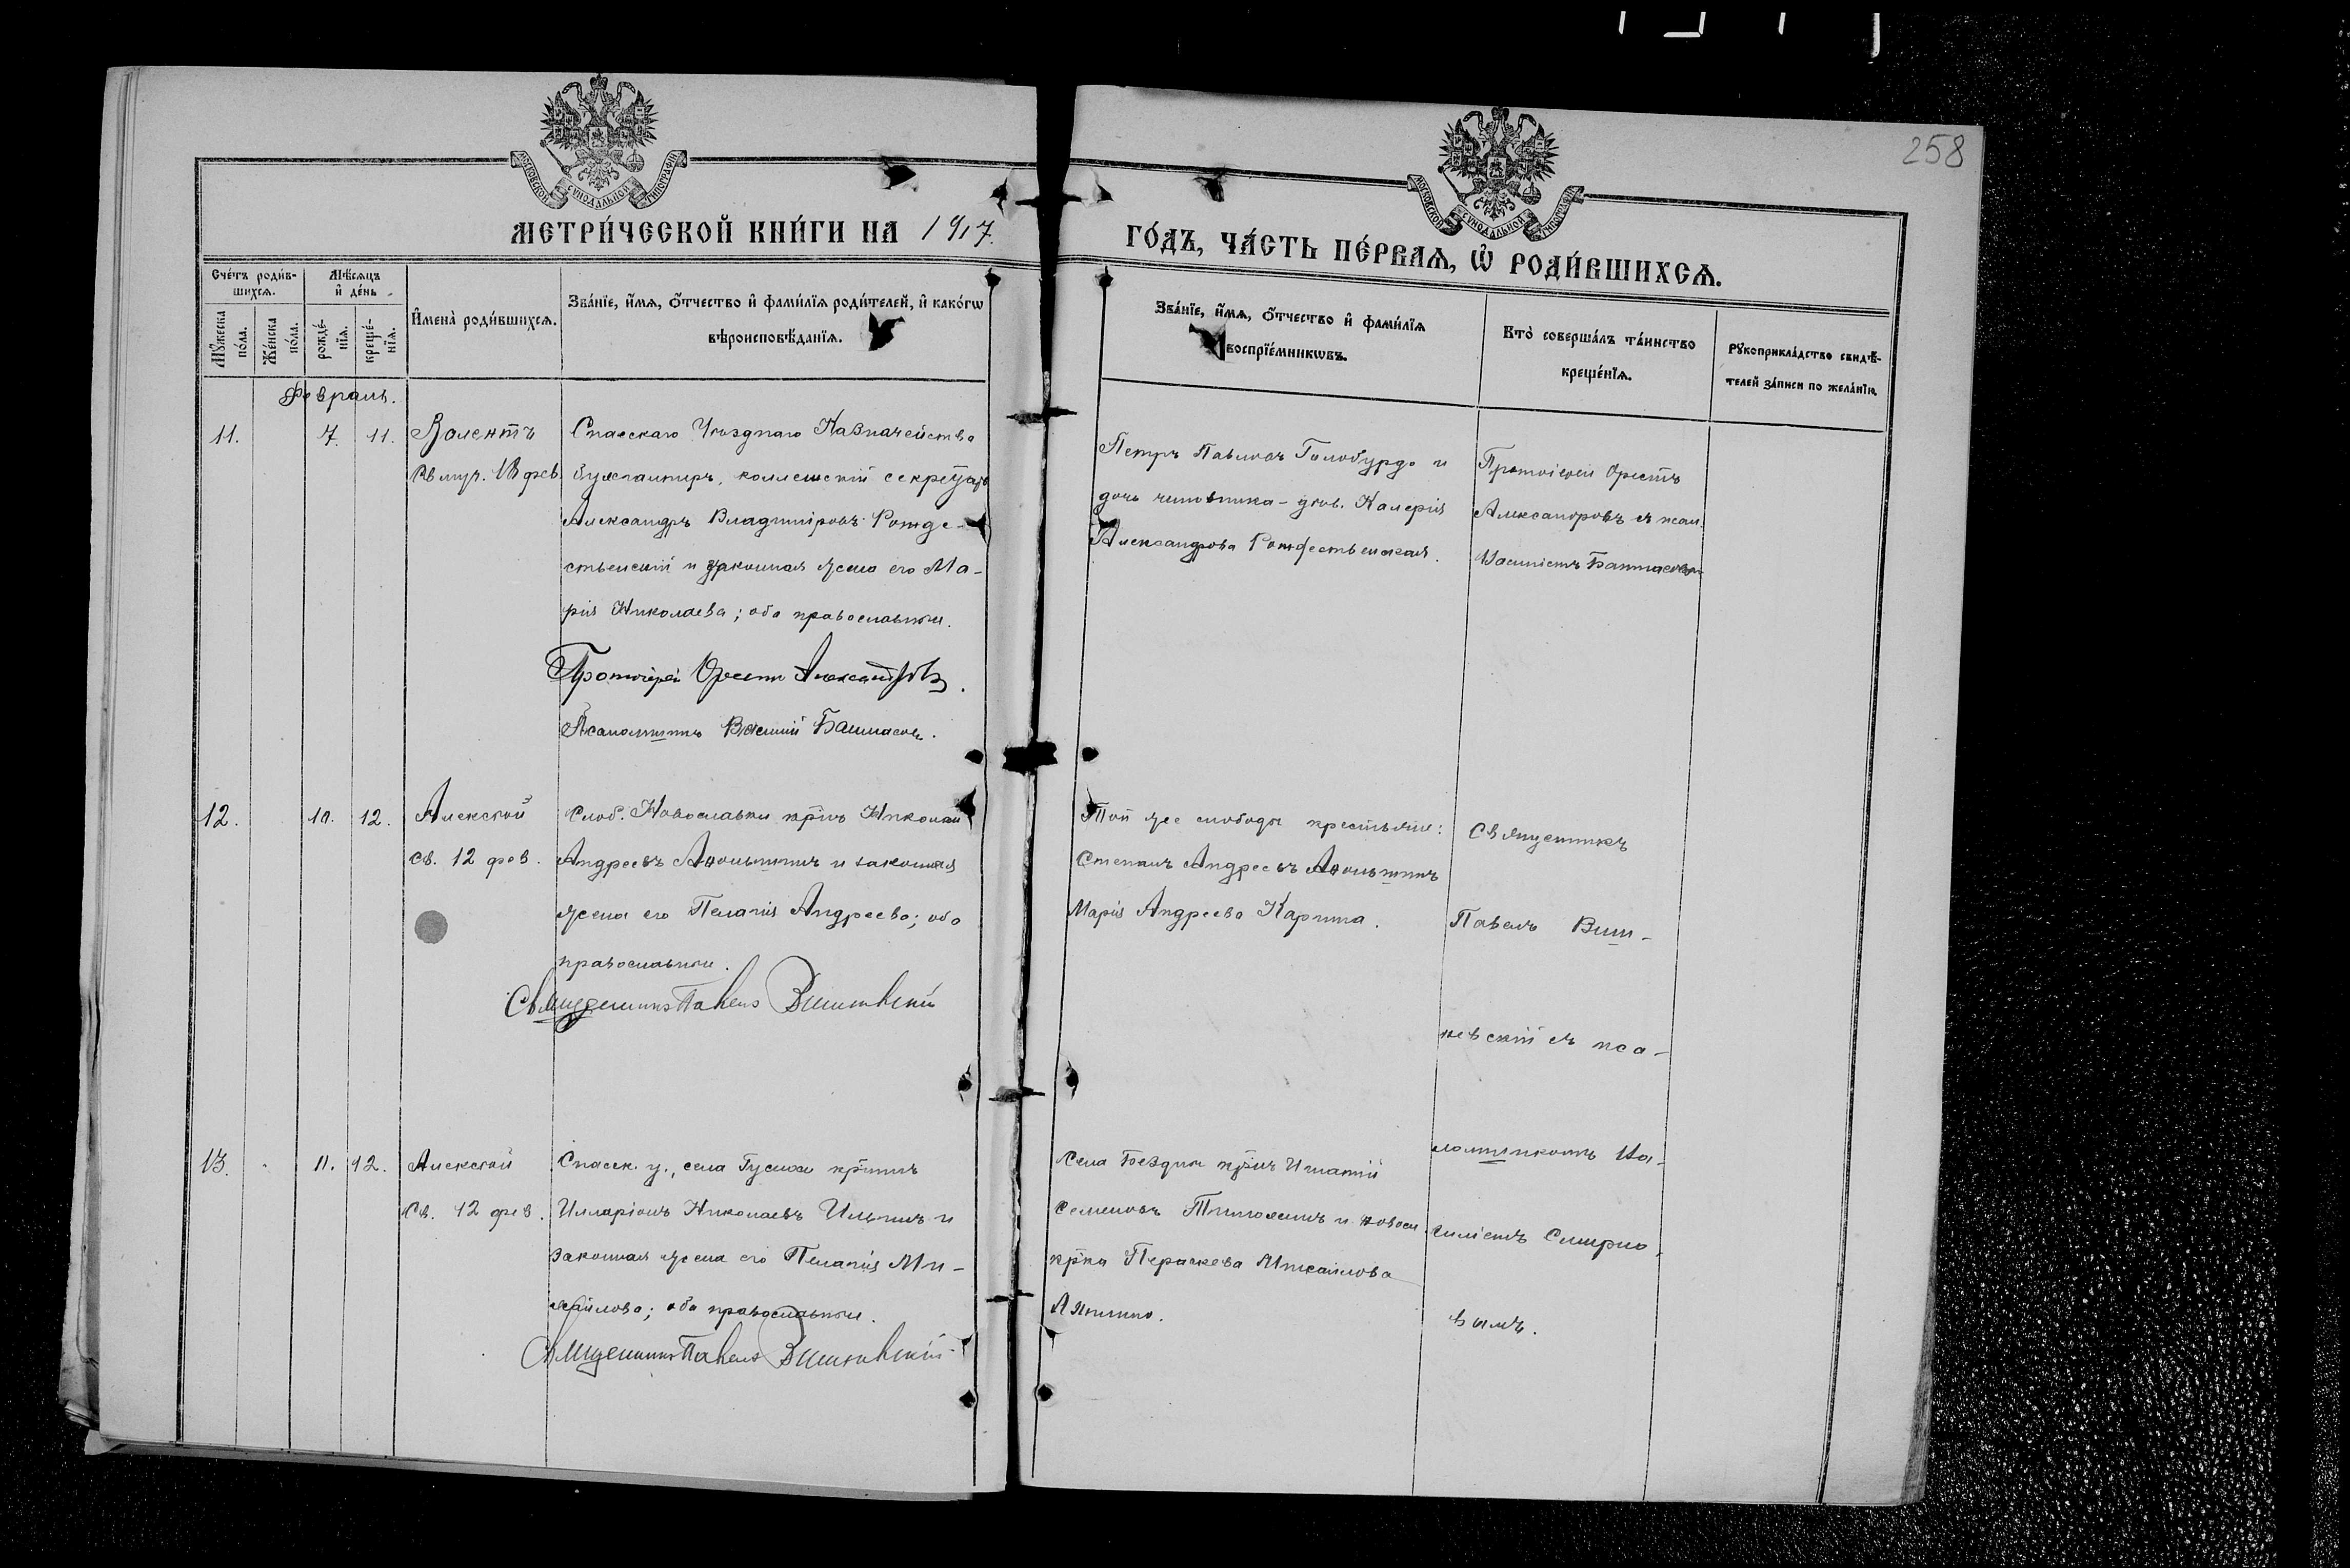 258
МОСКОВСКОЙ СѴНОДАЛЬНОЙ ТИПОГРАФІИ
МОСКОВСКОЙ СѴНОДАЛЬНОЙ ТИПОГРАФІИ
МЕТРИ́ЧЕСКОЙ КНИ́ГИ НА 1917.
ГО́ДЪ, ЧА́СТЬ ПЕ́РВАѦ, Ѡ҆ РОДИ́ВШИХСѦ.
Сче́тъ роди́в-
шихсѧ.
Мѣ́сѧцъ
и҆ де́нь
Мꙋ́жеска по́ла.
Же́нска по́ла.
рожде́-нїѧ.
креще́-нїѧ.
И҆мена̀ роди́вшихсѧ.
Зва́нїе, и҆́мѧ, ѻ҆́тчество и҆ фами́лїѧ роди́телей, и҆ како́гѡ
вѣроисповѣ́данїѧ.
Зва́нїе, и҆́мѧ, ѻ҆́тчество и҆ фами́лїѧ
воспрїе́мникѡвъ.
Кто̀ соверша́лъ та́инство
креще́нїѧ.
Рꙋкоприкла́дство свидѣ́-
телей за́писи по жела́нїю.
Февраль.
11. 7. 11. Валентъ
Св муч. 16 фев
Спасскаго Уѣзднаго Казначейства
бухгалтиръ, коллежскій секретарь
Александръ Владиміровъ Рожде-
ственскій и законная жена его Ма-
рія Николаева; оба православные.
Протоіерей Орестъ Александровъ.
Псаломщикъ Василій Башмасовъ.
Петръ Павловъ Голобурдо и
дочь чиновника - дѣв. Калерія
Александрова Рождественская.
Протоіерей Орестъ
Александровъ съ псал.
12. 10. 12. Алексѣй
св. 12 фев.
Слоб. Новославки кр-нъ Николай
Андреевъ Аѳонышинъ и законная
жена его Пелагія Андреева; оба
православные.
Священникъ Павелъ Вишневскій
Той же слободы крестьяне:
Степанъ Андреевъ Аѳонышинъ
Марія Андреева Карпина.
Священникъ
Павелъ Виш-
невскій съ пса-
ломщикомъ Ва-
силіемъ Смирно-
вымъ.
13. 11. 12. Алексѣй
Св. 12 фев.
Спасск. у., села Гусихи кр-нинъ
Илларіонъ Николаевъ Ильинъ и
законная жена его Пелагія Ми-
хайлова; оба православные.
Священникъ Павелъ Вишневскій
Села Бездны кр-нъ Игнатій
Семеновъ и новосл.
кр-ка Параскева Михаилова